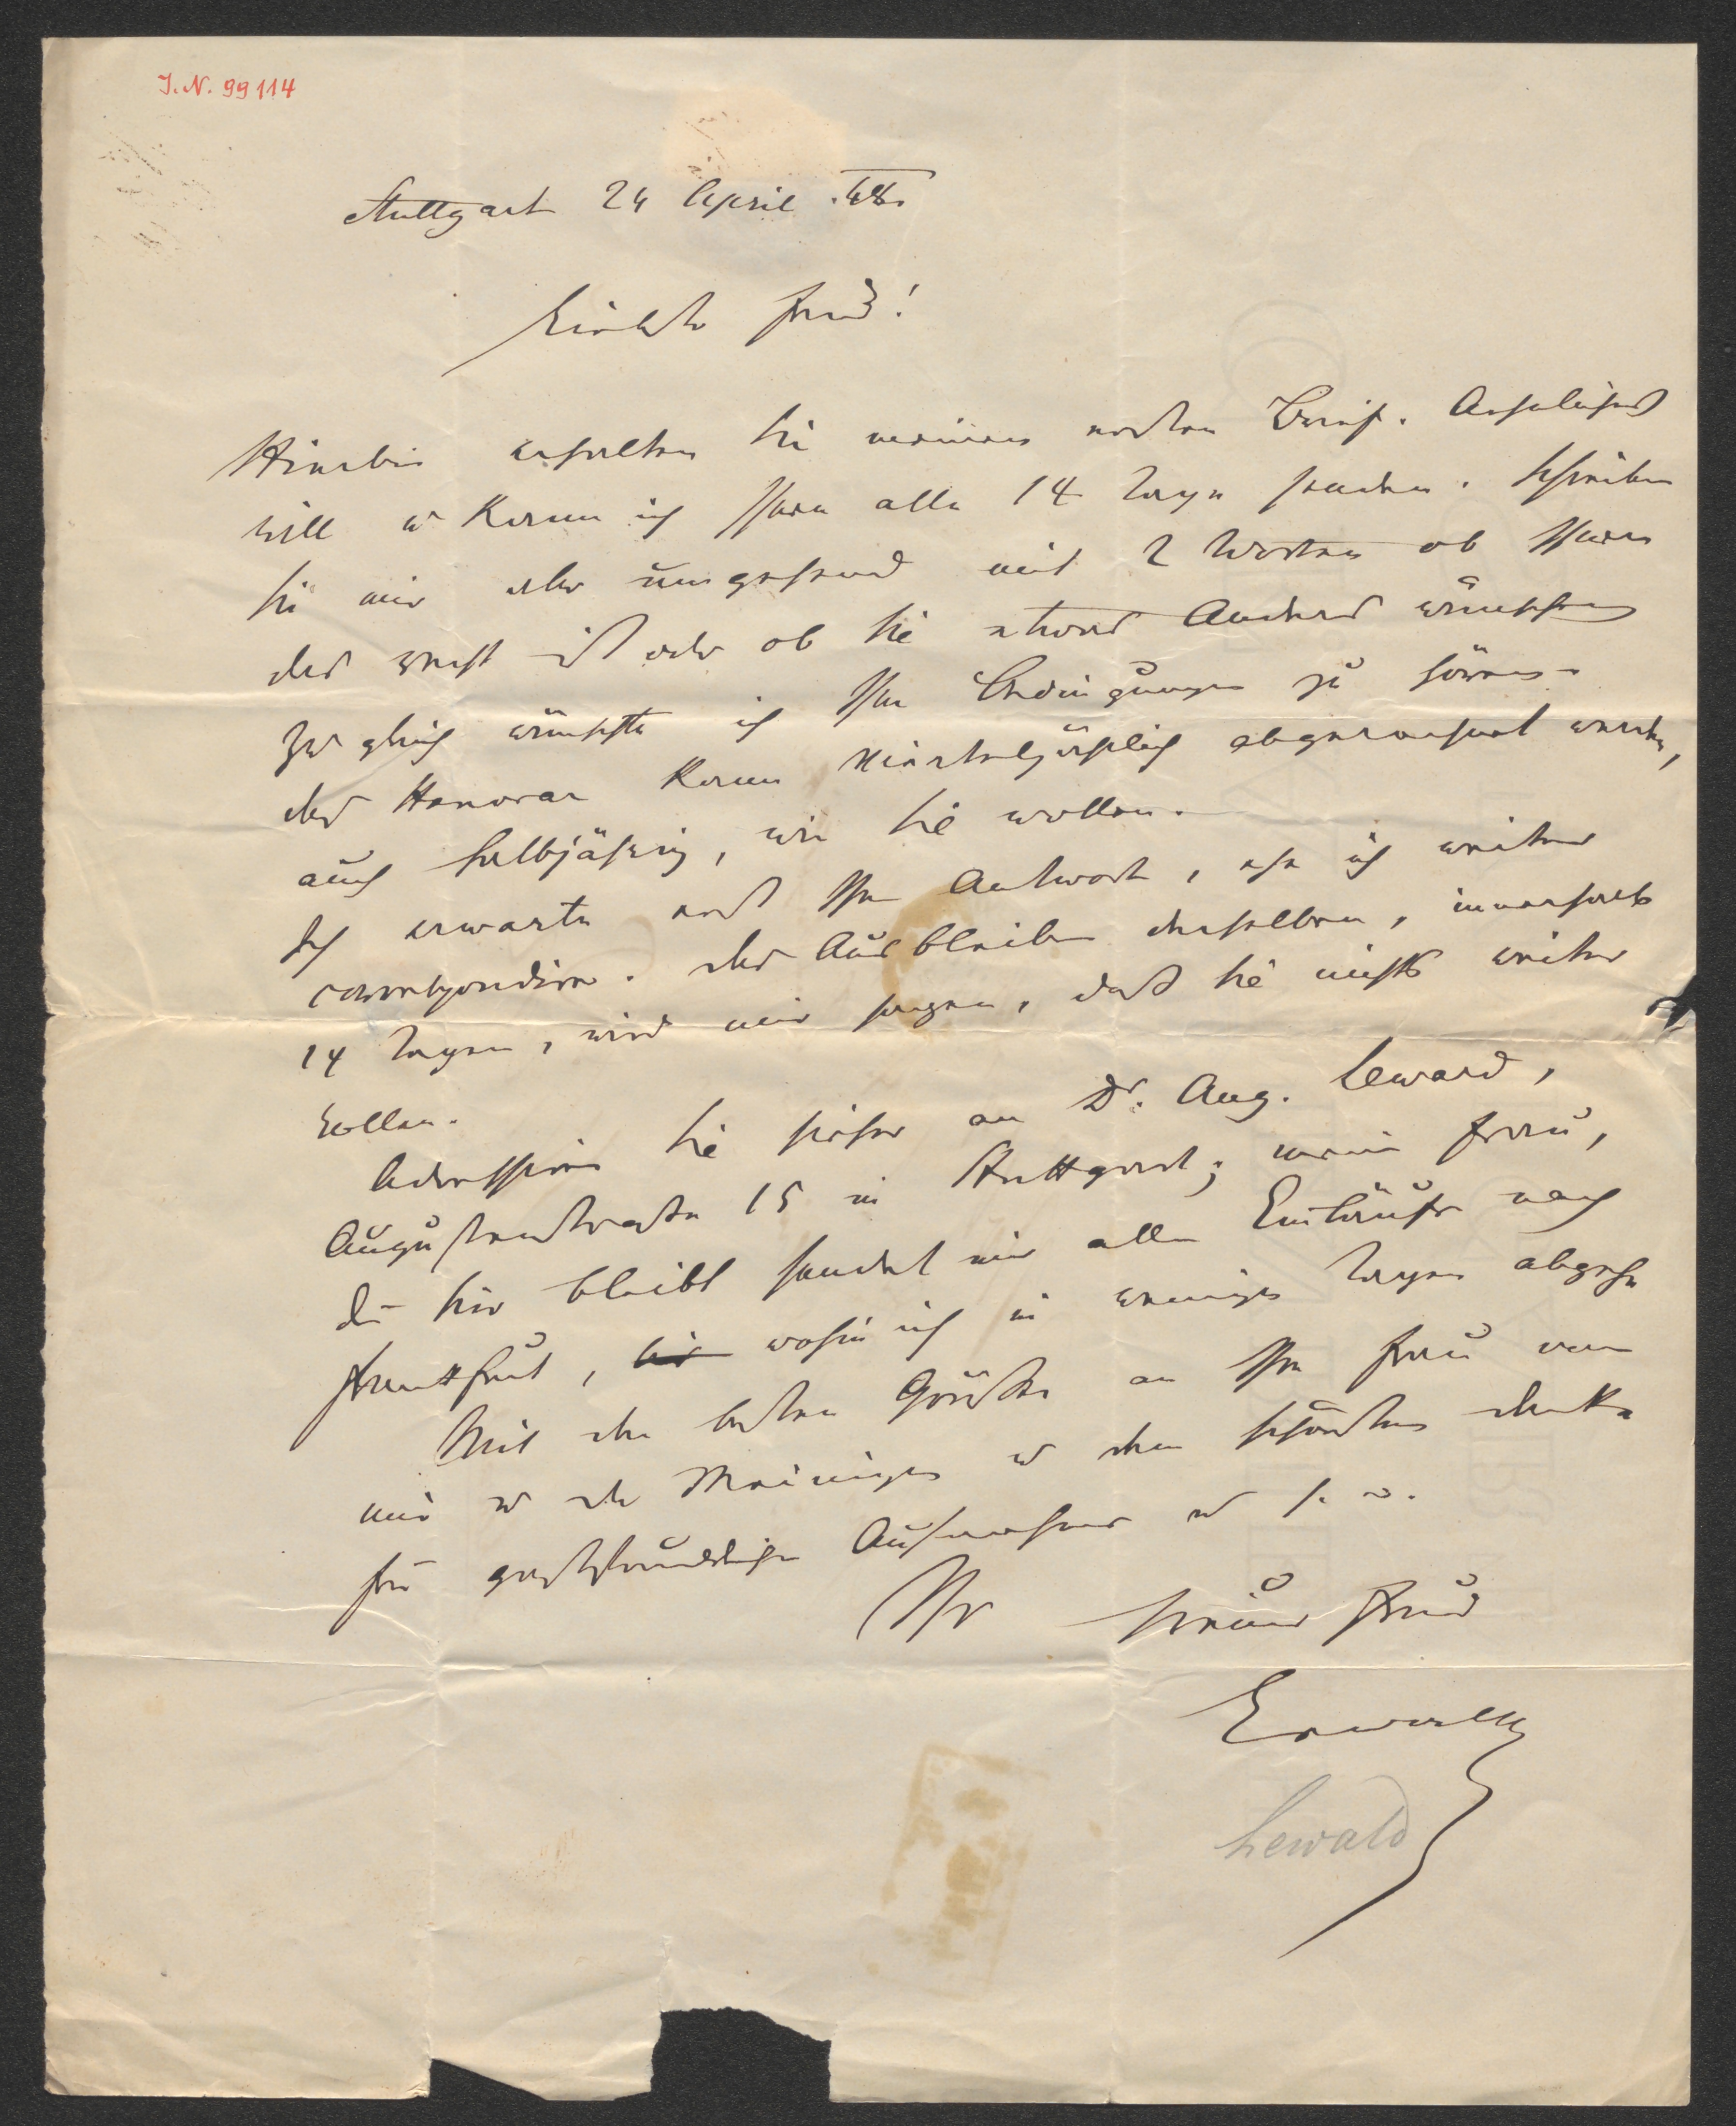 J.N. 99114
Stuttgart 24 April 48.
Liebster Freund!
Hierbei erhalten Sie meinen ersten Brief. Aehnliches
will u kann ich Ihnen alle 14 Tage senden. Schreiben
Sie mir aber umgehend mit 2 Worten ob Ihnen
das recht ist oder ob Sie etwas Anderes wünschen
Zugleich wünschte ich Ihre Bedingungen zu hören –
das Honorar kann vierteljährlich abgerechnet werden,
auch halbjährig, wie Sie wollen.
Ich erwarte erst Ihre Antwort, ehe ich weiter
correspondire. Das Ausbleiben derselben, innerhalb
14 Tagen, wird mir sagen, daß Sie nichts weiter
wollen.
Adressiren Sie hieher an Dr. Aug. Lewald,
Augustenstraße 15 in Stuttgart; meine Frau,
die hier bleibt sendet mir alle Einläufe nach
Frankfurt, wohin ich in wenigen Tagen abgehe
Mit den besten Grüßen an Ihre Frau von
mir u den Meinigen u dem schönsten Danke
für gastfreundliche Aufnahme u s. w.
Ihr treuer Freund
Lewald
Lewald